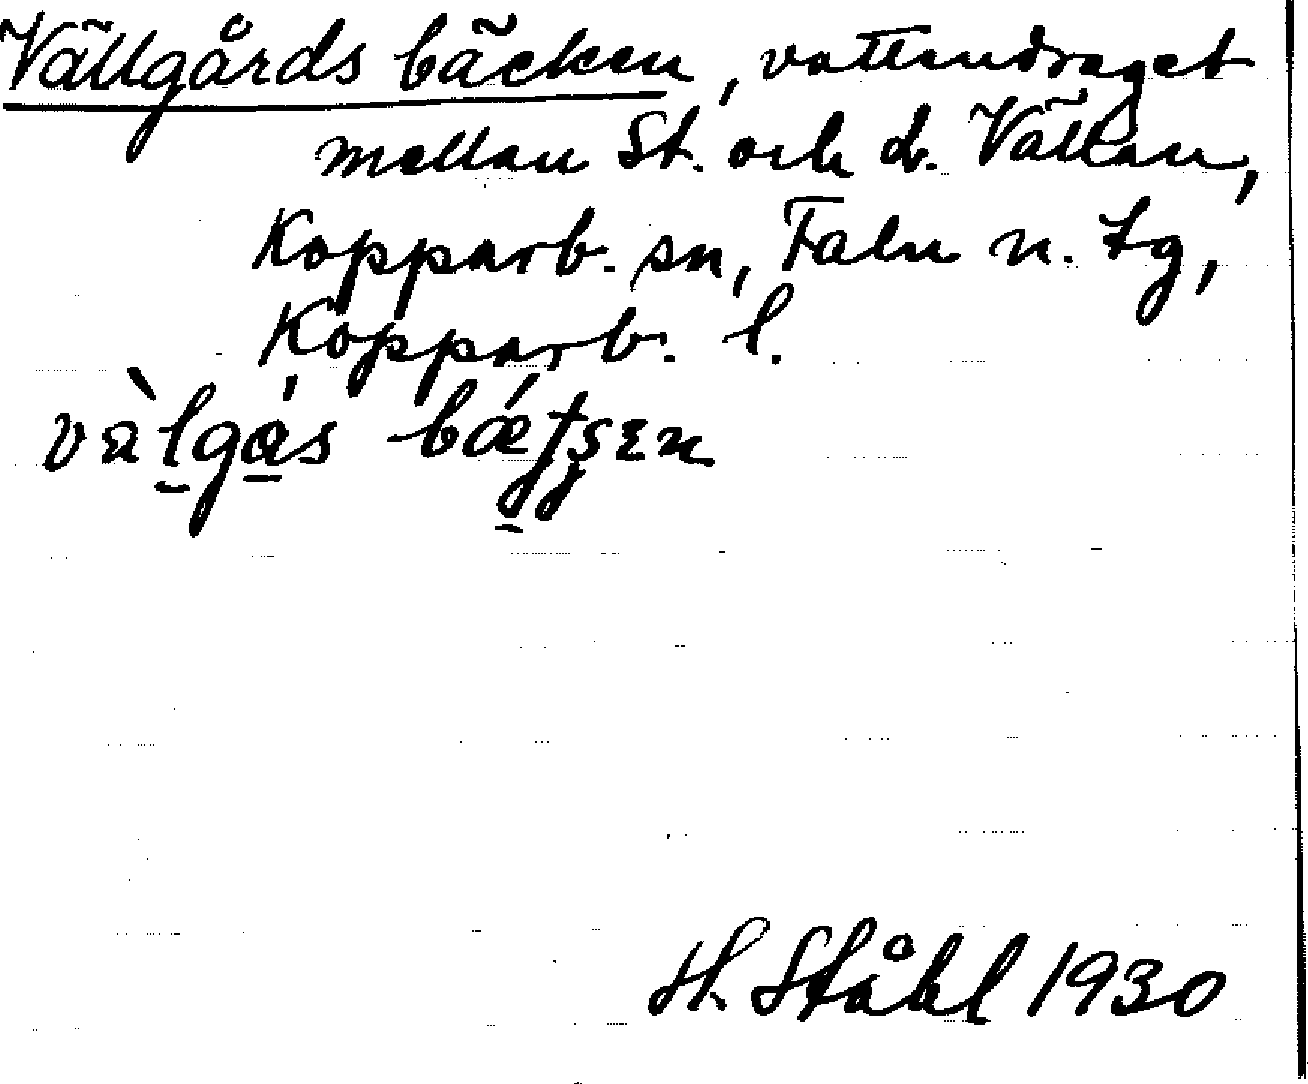 Vällgårds bäcken, vattendraget
mellan St. och L. Vällan,
Kopparb. sn, Falu n. tg,
Kopparb. l.
H. Ståhl 1930